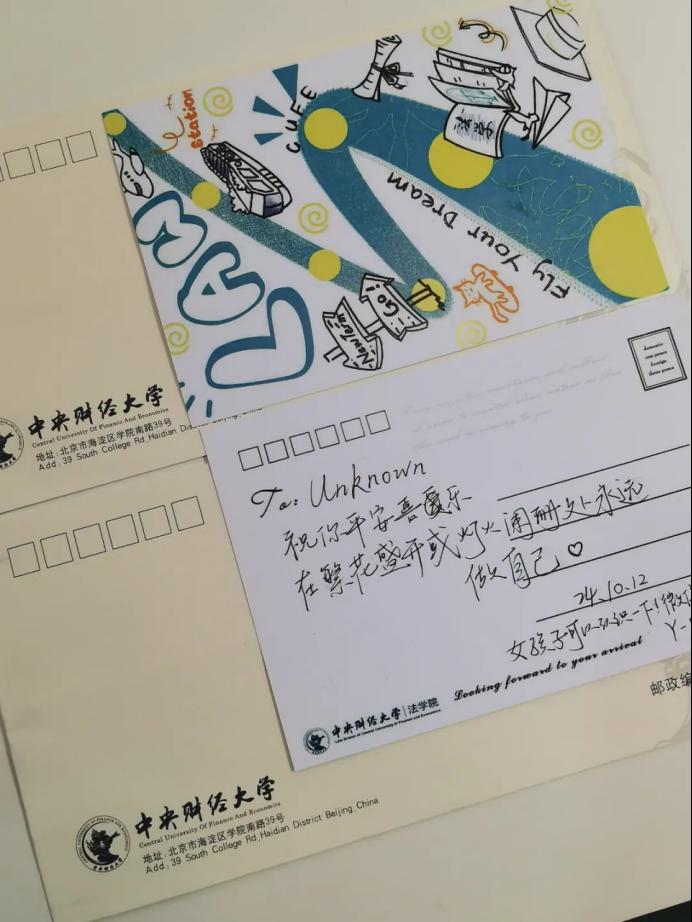 station
CUFE
LAW
New Term
Go!
Fly Your Dream
法学
中央财经大学
Central University Of Finance And Economics
地址:北京市海淀区学院南路39号
Add: 39 South College Rd,Haidian
To: Unknown
祝你平安喜爱乐
在繁花盛开或灯火阑珊处永远
做自己♡
24.10.12
女孩子可以认识一下!微信
Y-
Looking forward to your arrival
中央财经大学|法学院
Law School of Central University of Finance and Economics
邮政编
中央财经大学
Central University Of Finance And Economics
地址:北京市海淀区学院南路39号
Add: 39 South College Rd,Haidian District Beijing,China